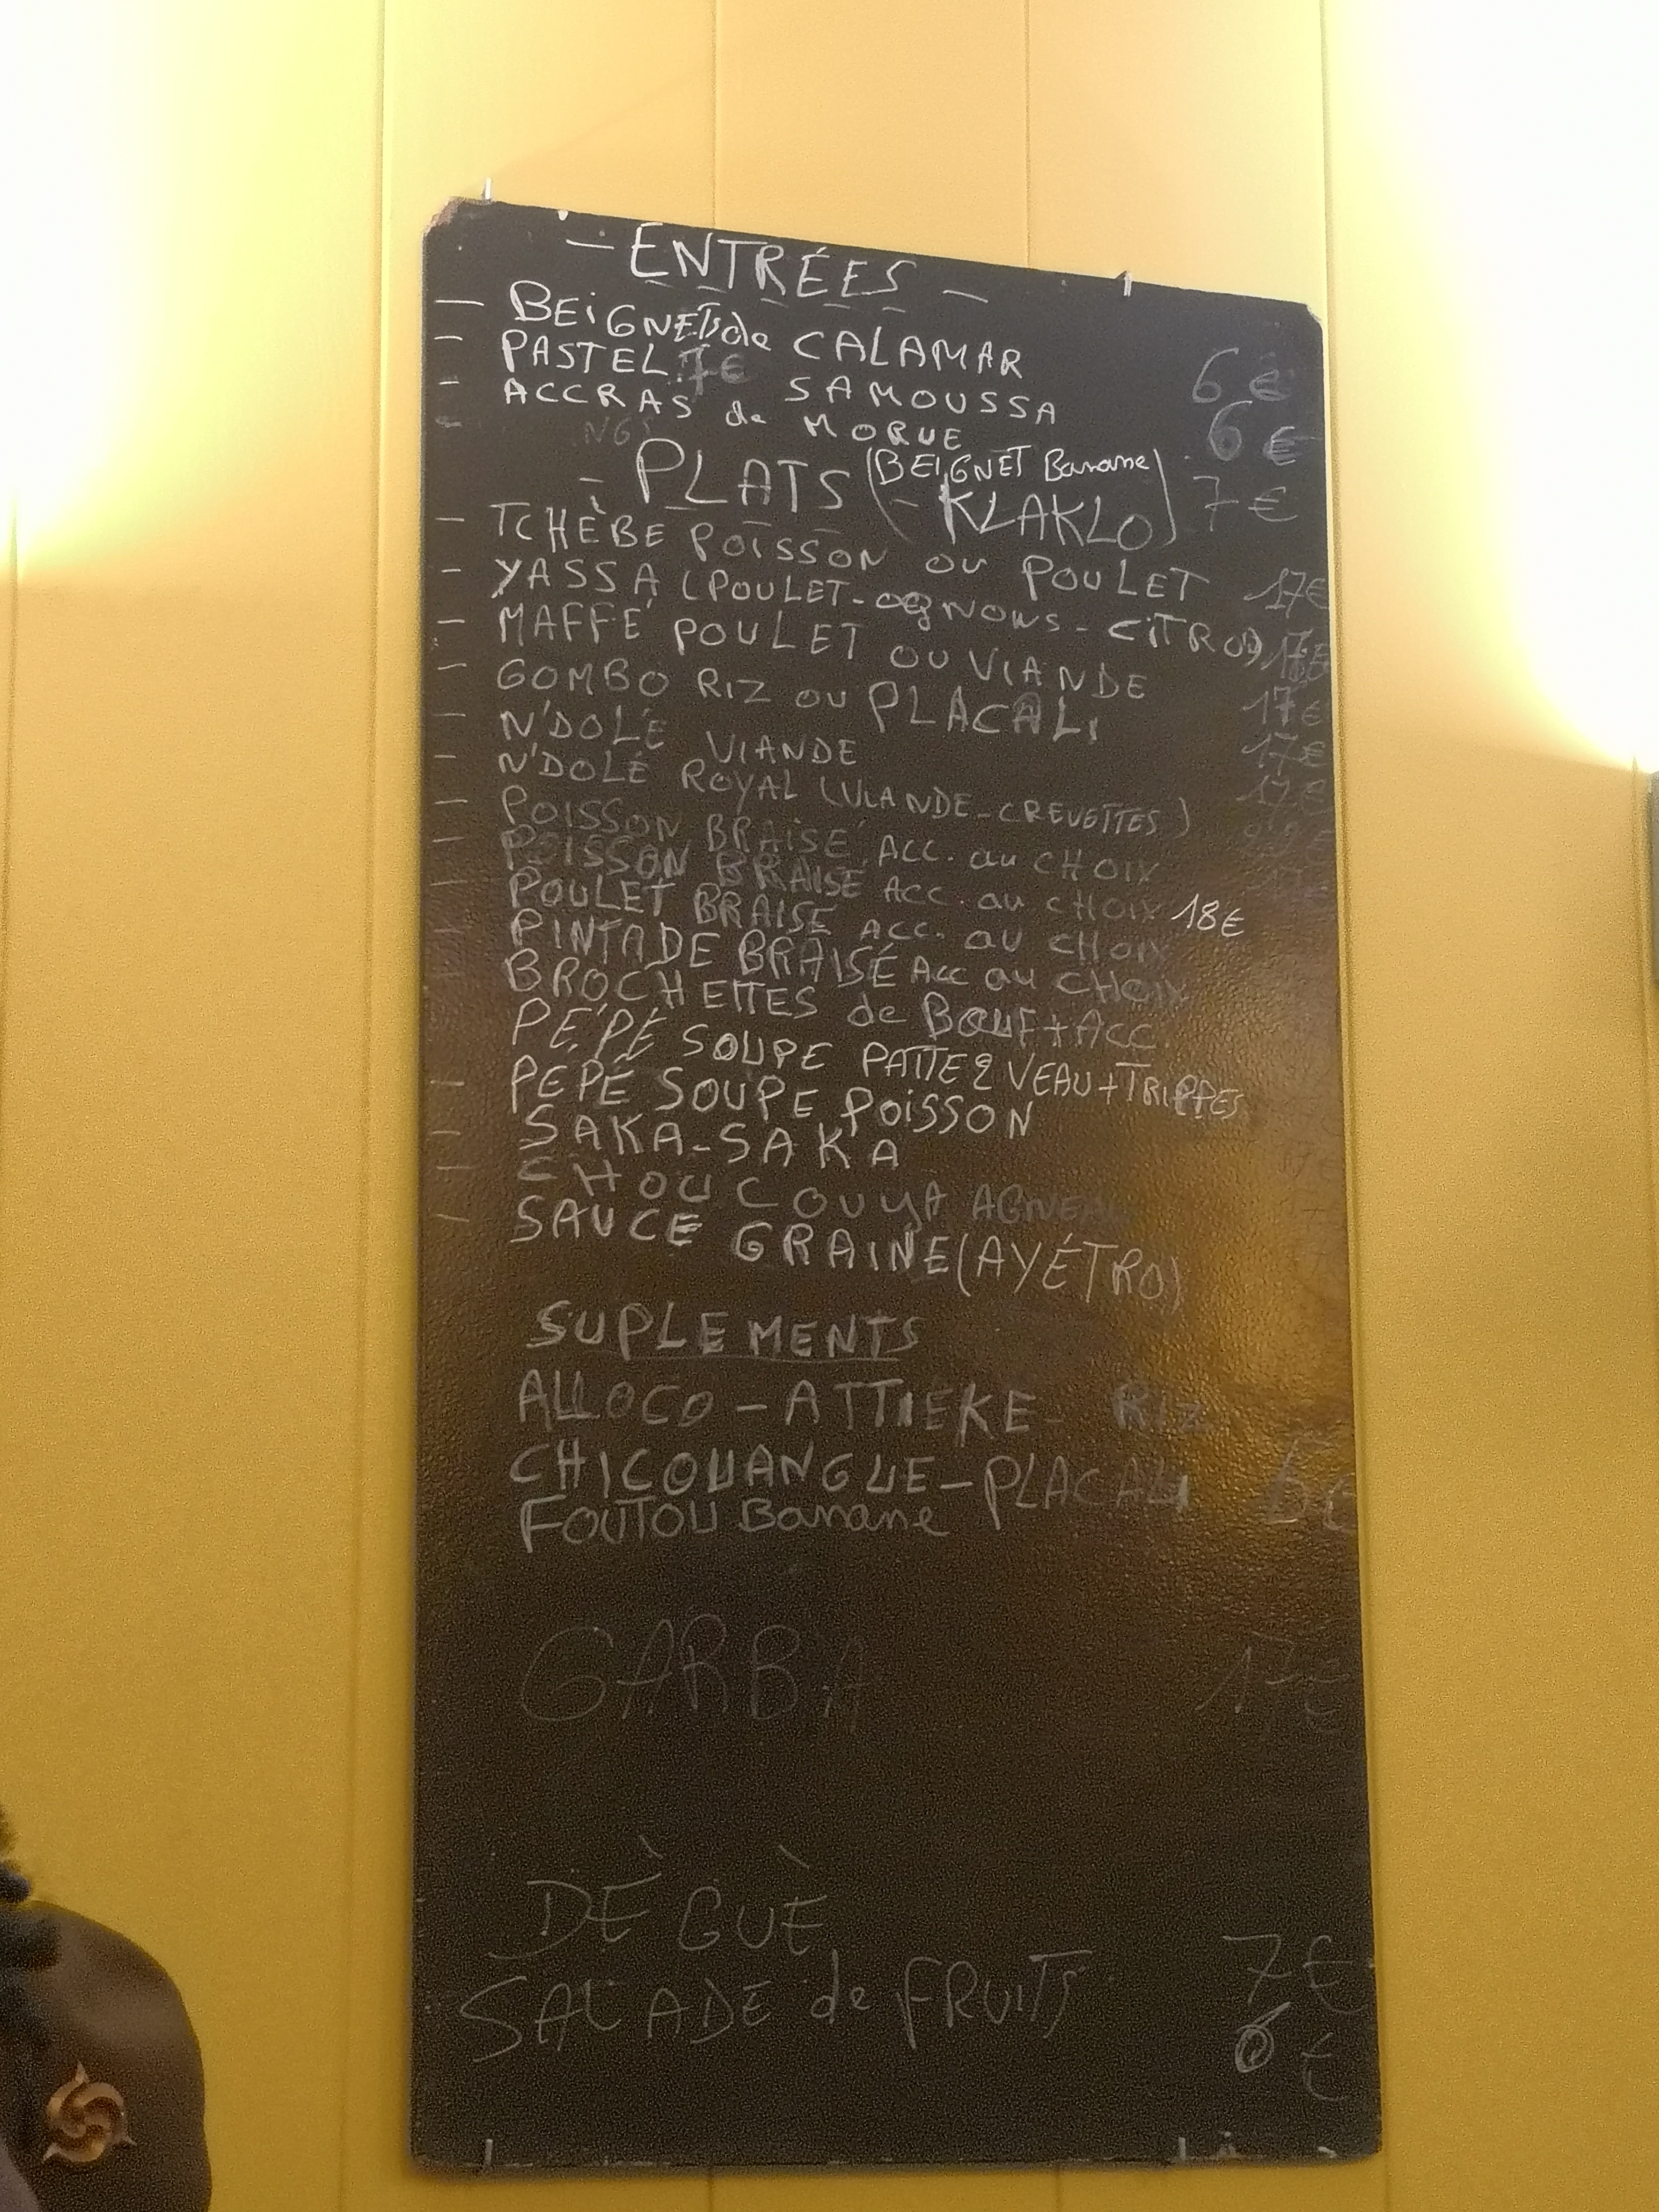 - ENTRÉES -
- BEIGNETS de CALAMAR 6 €
- PASTEL 7€ SAMOUSSA 6 €
- ACCRAS de MORUE
(BEIGNET Banane
- PLATS - KLAKLO) 7 €
- TCHÈBE POISSON OU POULET 17€
- YASSA (POULET-OGNONS-CITRON)
- MAFFÉ POULET OU VIANDE 17€
- GOMBO RIZ OU PLACALI 17€
- N'DOLÉ VIANDE 17€
- N'DOLÉ ROYAL (VIANDE-CREVETTES)
- POISSON BRAISÉ ACC. au CHOIX
- POISSON BRAISÉ ACC. au CHOIX 18€
- POULET BRAISÉ ACC. au CHOIX
PINTADE BRAISÉ Acc au CHOIX
BROCHETTES de BŒUF+ACC.
PÉPÉ SOUPE PATTE 2 VEAU+TRIPPES
- PÉPÉ SOUPE POISSON
- SAKA-SAKA
- CHOUCOUYA AGNEAU
- SAUCE GRAINE (AYÉTRO)
SUPLEMENTS
ALLOCO - ATTIEKE - RIZ
CHICOUANGUE-PLACALI
FOUTOU Banane
GARBA 17€
DÈGUÈ 7€
SALADE de FRUITS 6 €